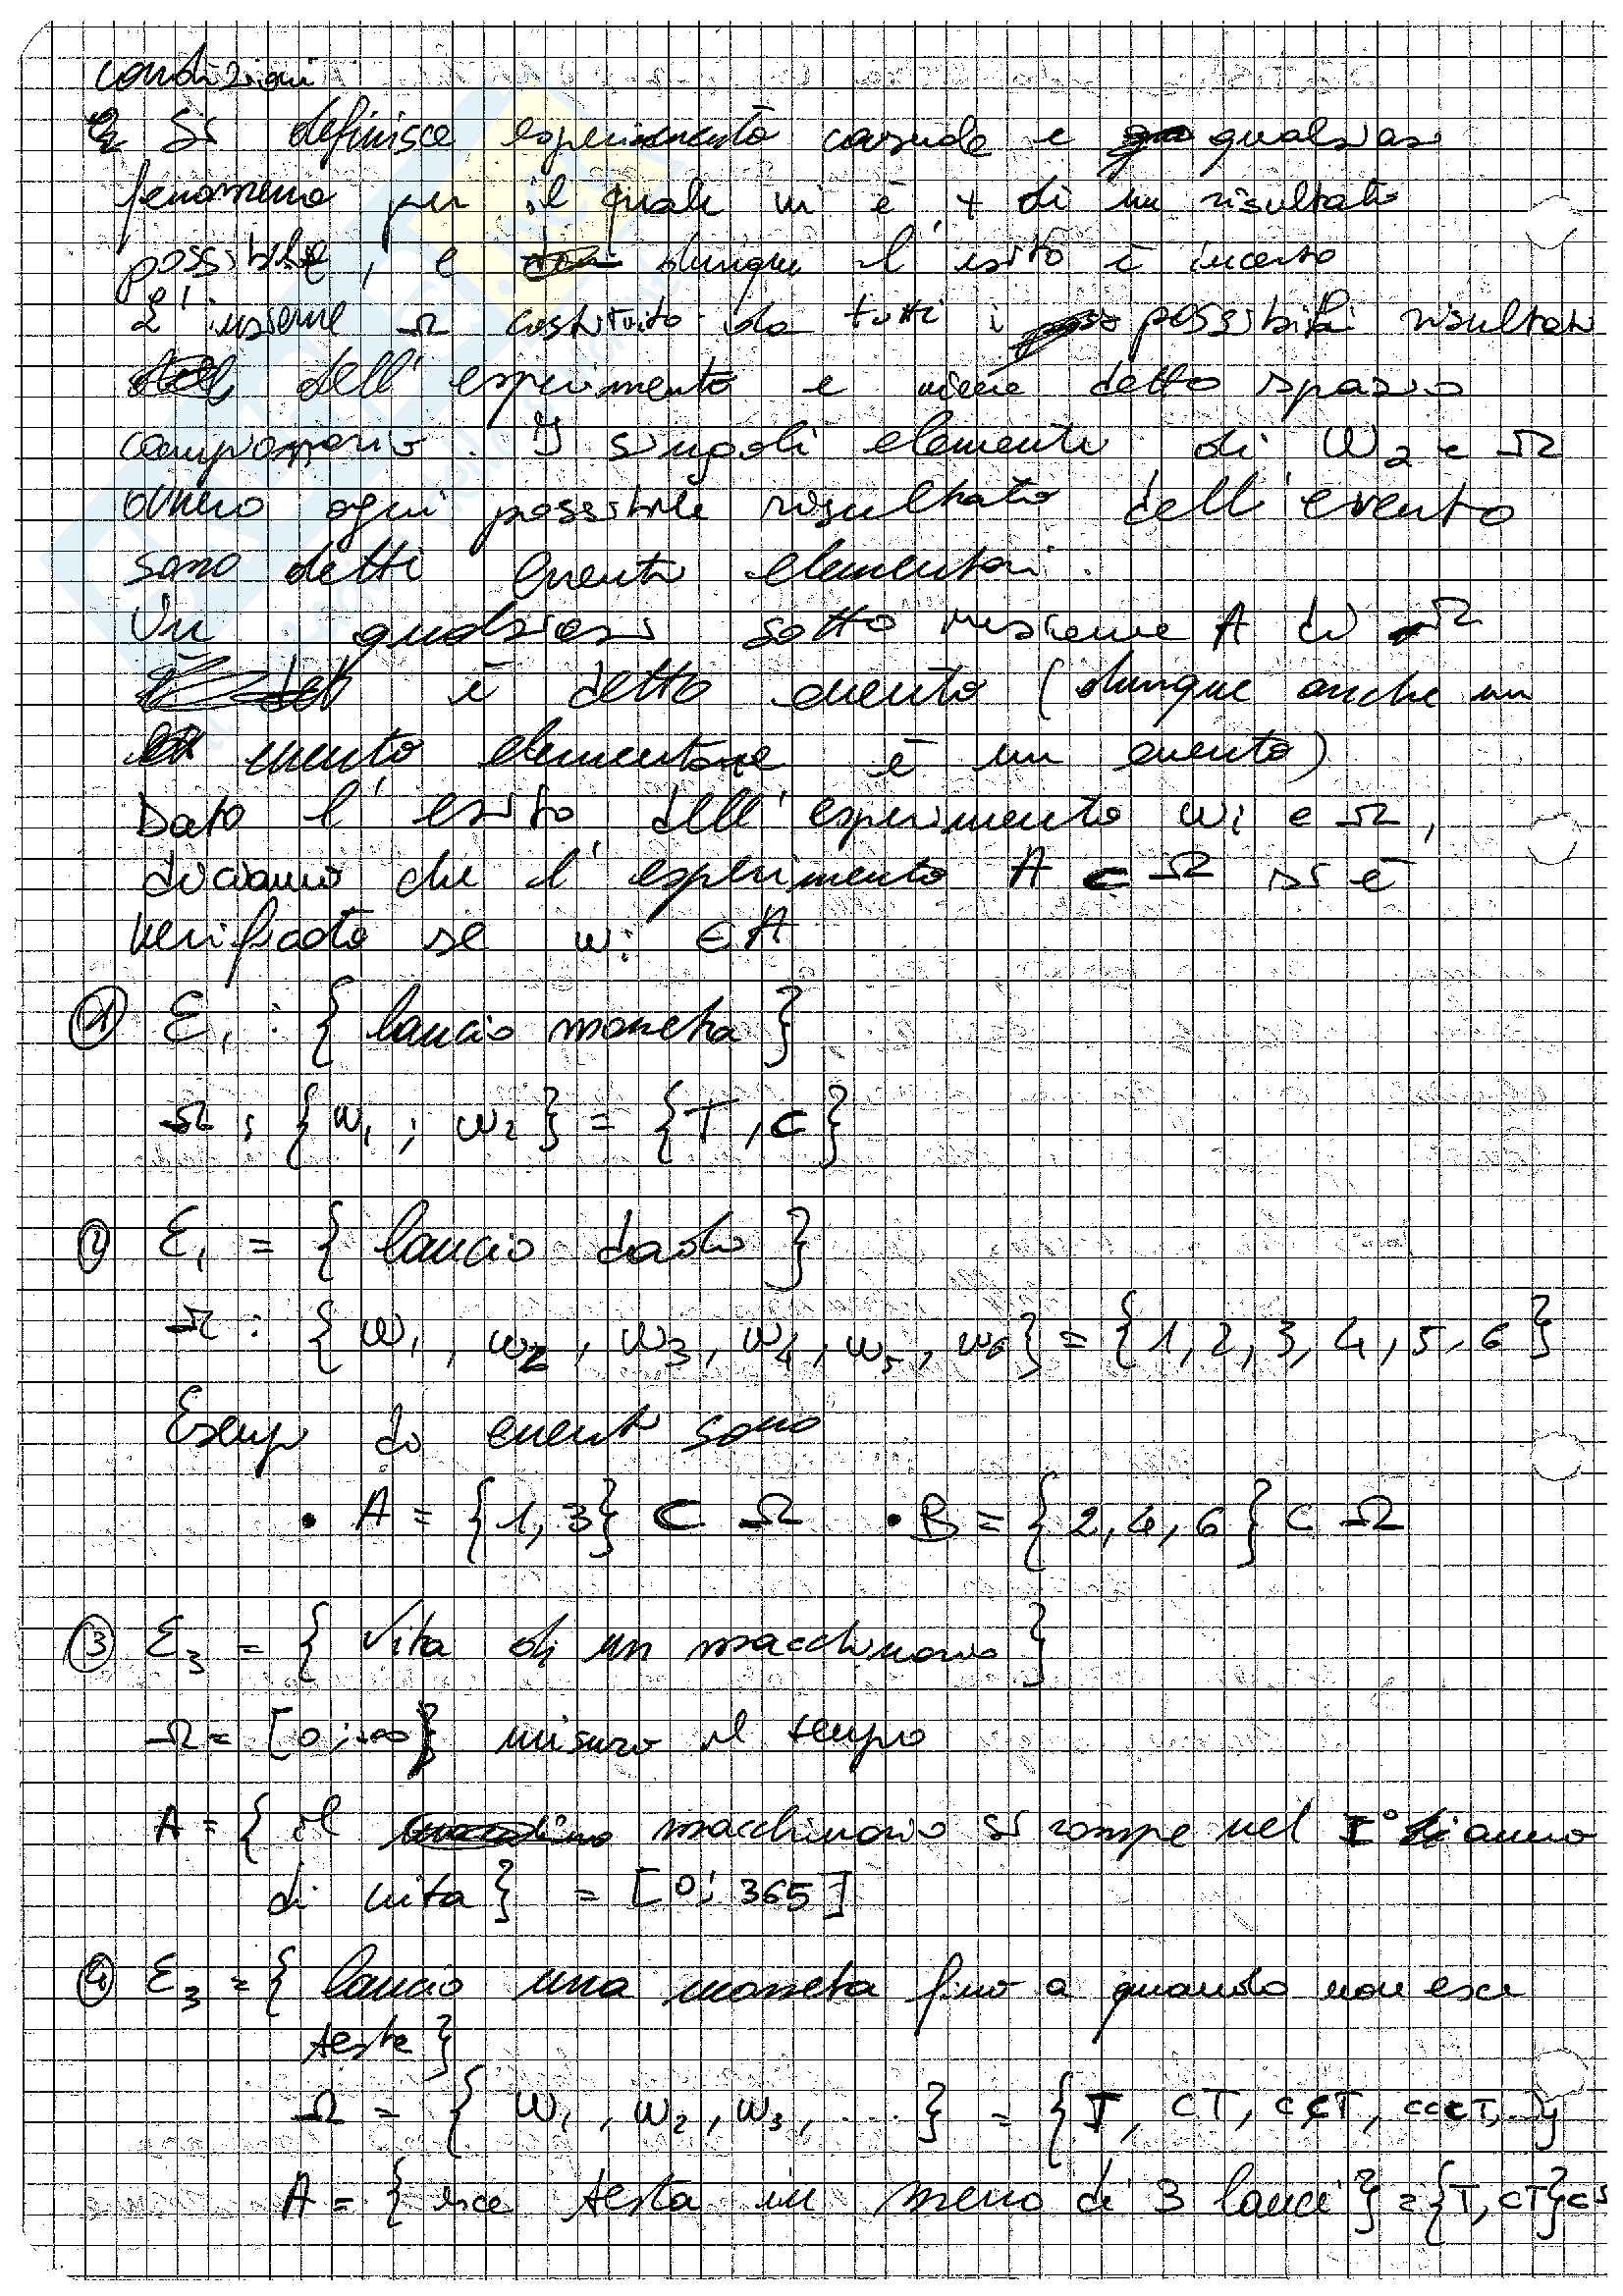 condizioni
Si definisce esperimento casuale e qualsiasi
fenomeno per il quale vi è + di un risultato
possibile, e dunque l'esito è incerto
L'insieme Ω costituito da tutti i possibili risultati
dell'esperimento e viene detto spazio
campionario. I singoli elementi di W2 e Ω
ovvero ogni possibile risultato dell'evento
sono detti eventi elementari.
Un qualsiasi sotto insieme A di Ω
è detto evento (dunque anche un
evento elementare è un evento)
Dato l'esito dell'esperimento wi e Ω,
diciamo che l'esperimento A ⊂ Ω si è
verificato se wi ∈ A
① E1 : { lancio moneta }
Ω : { w1 ; w2 } = { T , C }
② E1 = { lancio dado }
Ω : { w1 , w2 , w3 , w4 , w5 , w6 } = { 1, 2, 3, 4, 5, 6 }
Esempi di eventi sono
• A = { 1, 3 } ⊂ Ω • B = { 2, 4, 6 } ⊂ Ω
③ E3 = { vita di un macchinario }
Ω = [0; +∞} misuro il tempo
A = { il macchinario si rompe nel I° anno
di vita } = [0; 365]
④ E3 = { lancio una moneta fino a quando non esce
testa }
Ω = { w1 , w2 , w3 , .... } = { T, CT, CCT, CCCT, ...}
A = { esce testa in meno di 3 lanci } = { T, CT} ⊂